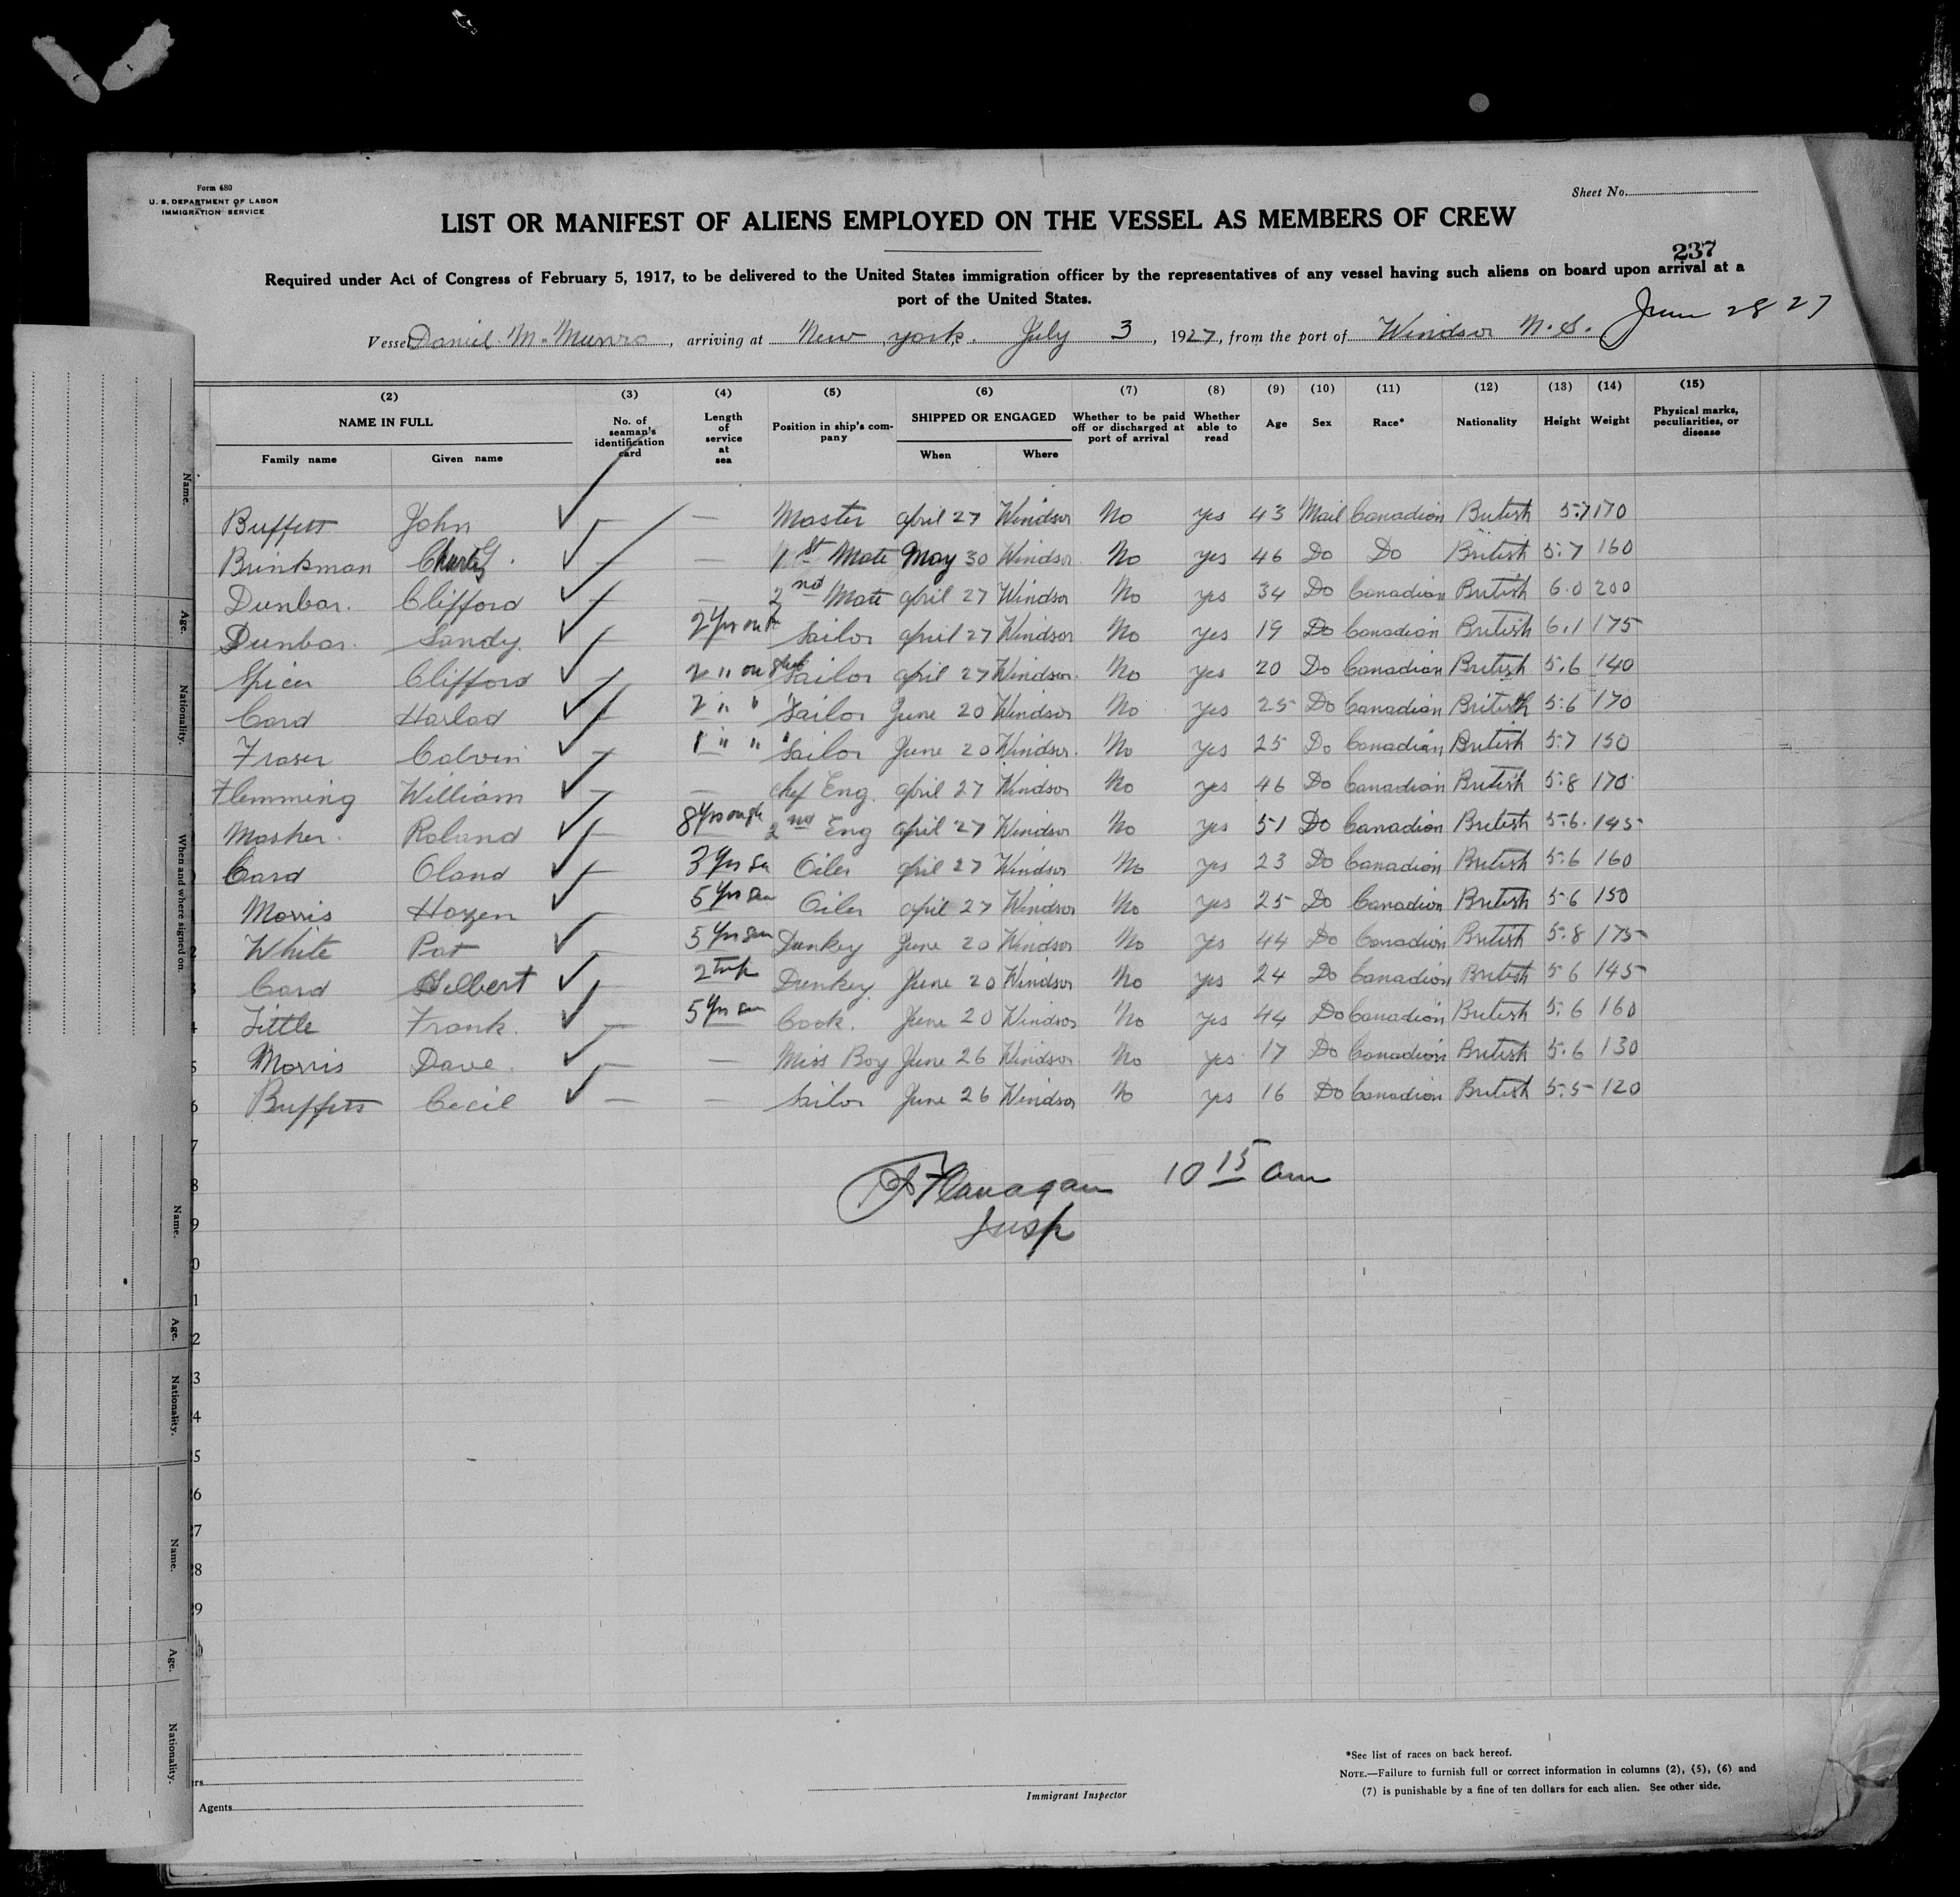 Form 680
U. S. DEPARTMENT OF LABOR
IMMIGRATION SERVICE
Sheet No.
LIST OR MANIFEST OF ALIENS EMPLOYED ON THE VESSEL AS MEMBERS OF CREW
237
Required under Act of Congress of February 5, 1917, to be delivered to the United States immigration officer by the representatives of any vessel having such aliens on board upon arrival at a
port of the United States.
June 28 27
Vessel Daniel M. Munro, arriving at New york. July 3, 1927, from the port of Windsor N.S.
(2) (3) (4) (5) (6) (7) (8) (9) (10) (11) (12) (13) (14) (15)
NAME IN FULL No. of seaman's identification card Length of service at sea Position in ship's company SHIPPED OR ENGAGED Whether to be paid off or discharged at port of arrival Whether able to read Age Sex Race* Nationality Height Weight Physical marks, peculiarities, or disease
Family name Given name When Where
Buffett John ✓ — — Master april 27 Windsor No yes 43 Mail Canadian British 5.7 170
Brinkman Charles ✓ — — 1st Mate May 30 Windsor No yes 46 Do Do British 5.7 160
Dunbar. Clifford ✓ — — 2nd Mate april 27 Windsor No yes 34 Do Canadian British 6.0 200
Dunbar. Sandy. ✓ — 2 yrs Sailor april 27 Windsor No yes 19 Do Canadian British 6.1 175
Spicer Clifford ✓ — 2 " on ship Sailor april 27 Windsor. No yes 20 Do Canadian British 5.6 140
Card Harlad ✓ — 2 " " Sailor June 20 Windsor No yes 25 Do Canadian British 5.6 170
Fraser Calvin ✓ — 1 " " " Sailor June 20 Windsor. No yes 25 Do Canadian British 5.7 150
Flemming William ✓ — — chef Eng. april 27 Windsor No yes 46 Do Canadian British 5.8 170
Mosher. Roland ✓ — 8 yrs 2nd Eng april 27 Windsor No yes 51 Do Canadian British 5.6. 145
Card Oland ✓ — 3 yrs Oiler april 27 Windsor No yes 23 Do Canadian British 5.6 160
Morris Hazen ✓ 5 yrs Oiler april 27 Windsor No yes 25 Do Canadian British 5.6 150
White Pat ✓ — 5 yrs Dunkey June 20 Windsor No yes 44 Do Canadian British 5.8 175
Card Helbert ✓ — 2 trip Dunkey June 20 Windsor No yes 24 Do Canadian British 5.6 145
Little Frank. ✓ — 5 yrs Cook. June 20 Windsor No yes 44 Do Canadian British 5.6 160
Morris Dave. ✓ — — Miss Boy June 26 Windsor No yes 17 Do Canadian British 5.6 130
Buffett Cecil ✓ — — Sailor June 26 Windsor No yes 16 Do Canadian British 5.5 120
Flanagan 10 15 am
Insp
Agents
Immigrant Inspector
*See list of races on back hereof.
NOTE.—Failure to furnish full or correct information in columns (2), (5), (6) and
(7) is punishable by a fine of ten dollars for each alien. See other side.
Name.
Age.
Nationality.
When and where signed on.
Name.
Age.
Nationality.
Name.
Age.
Nationality.